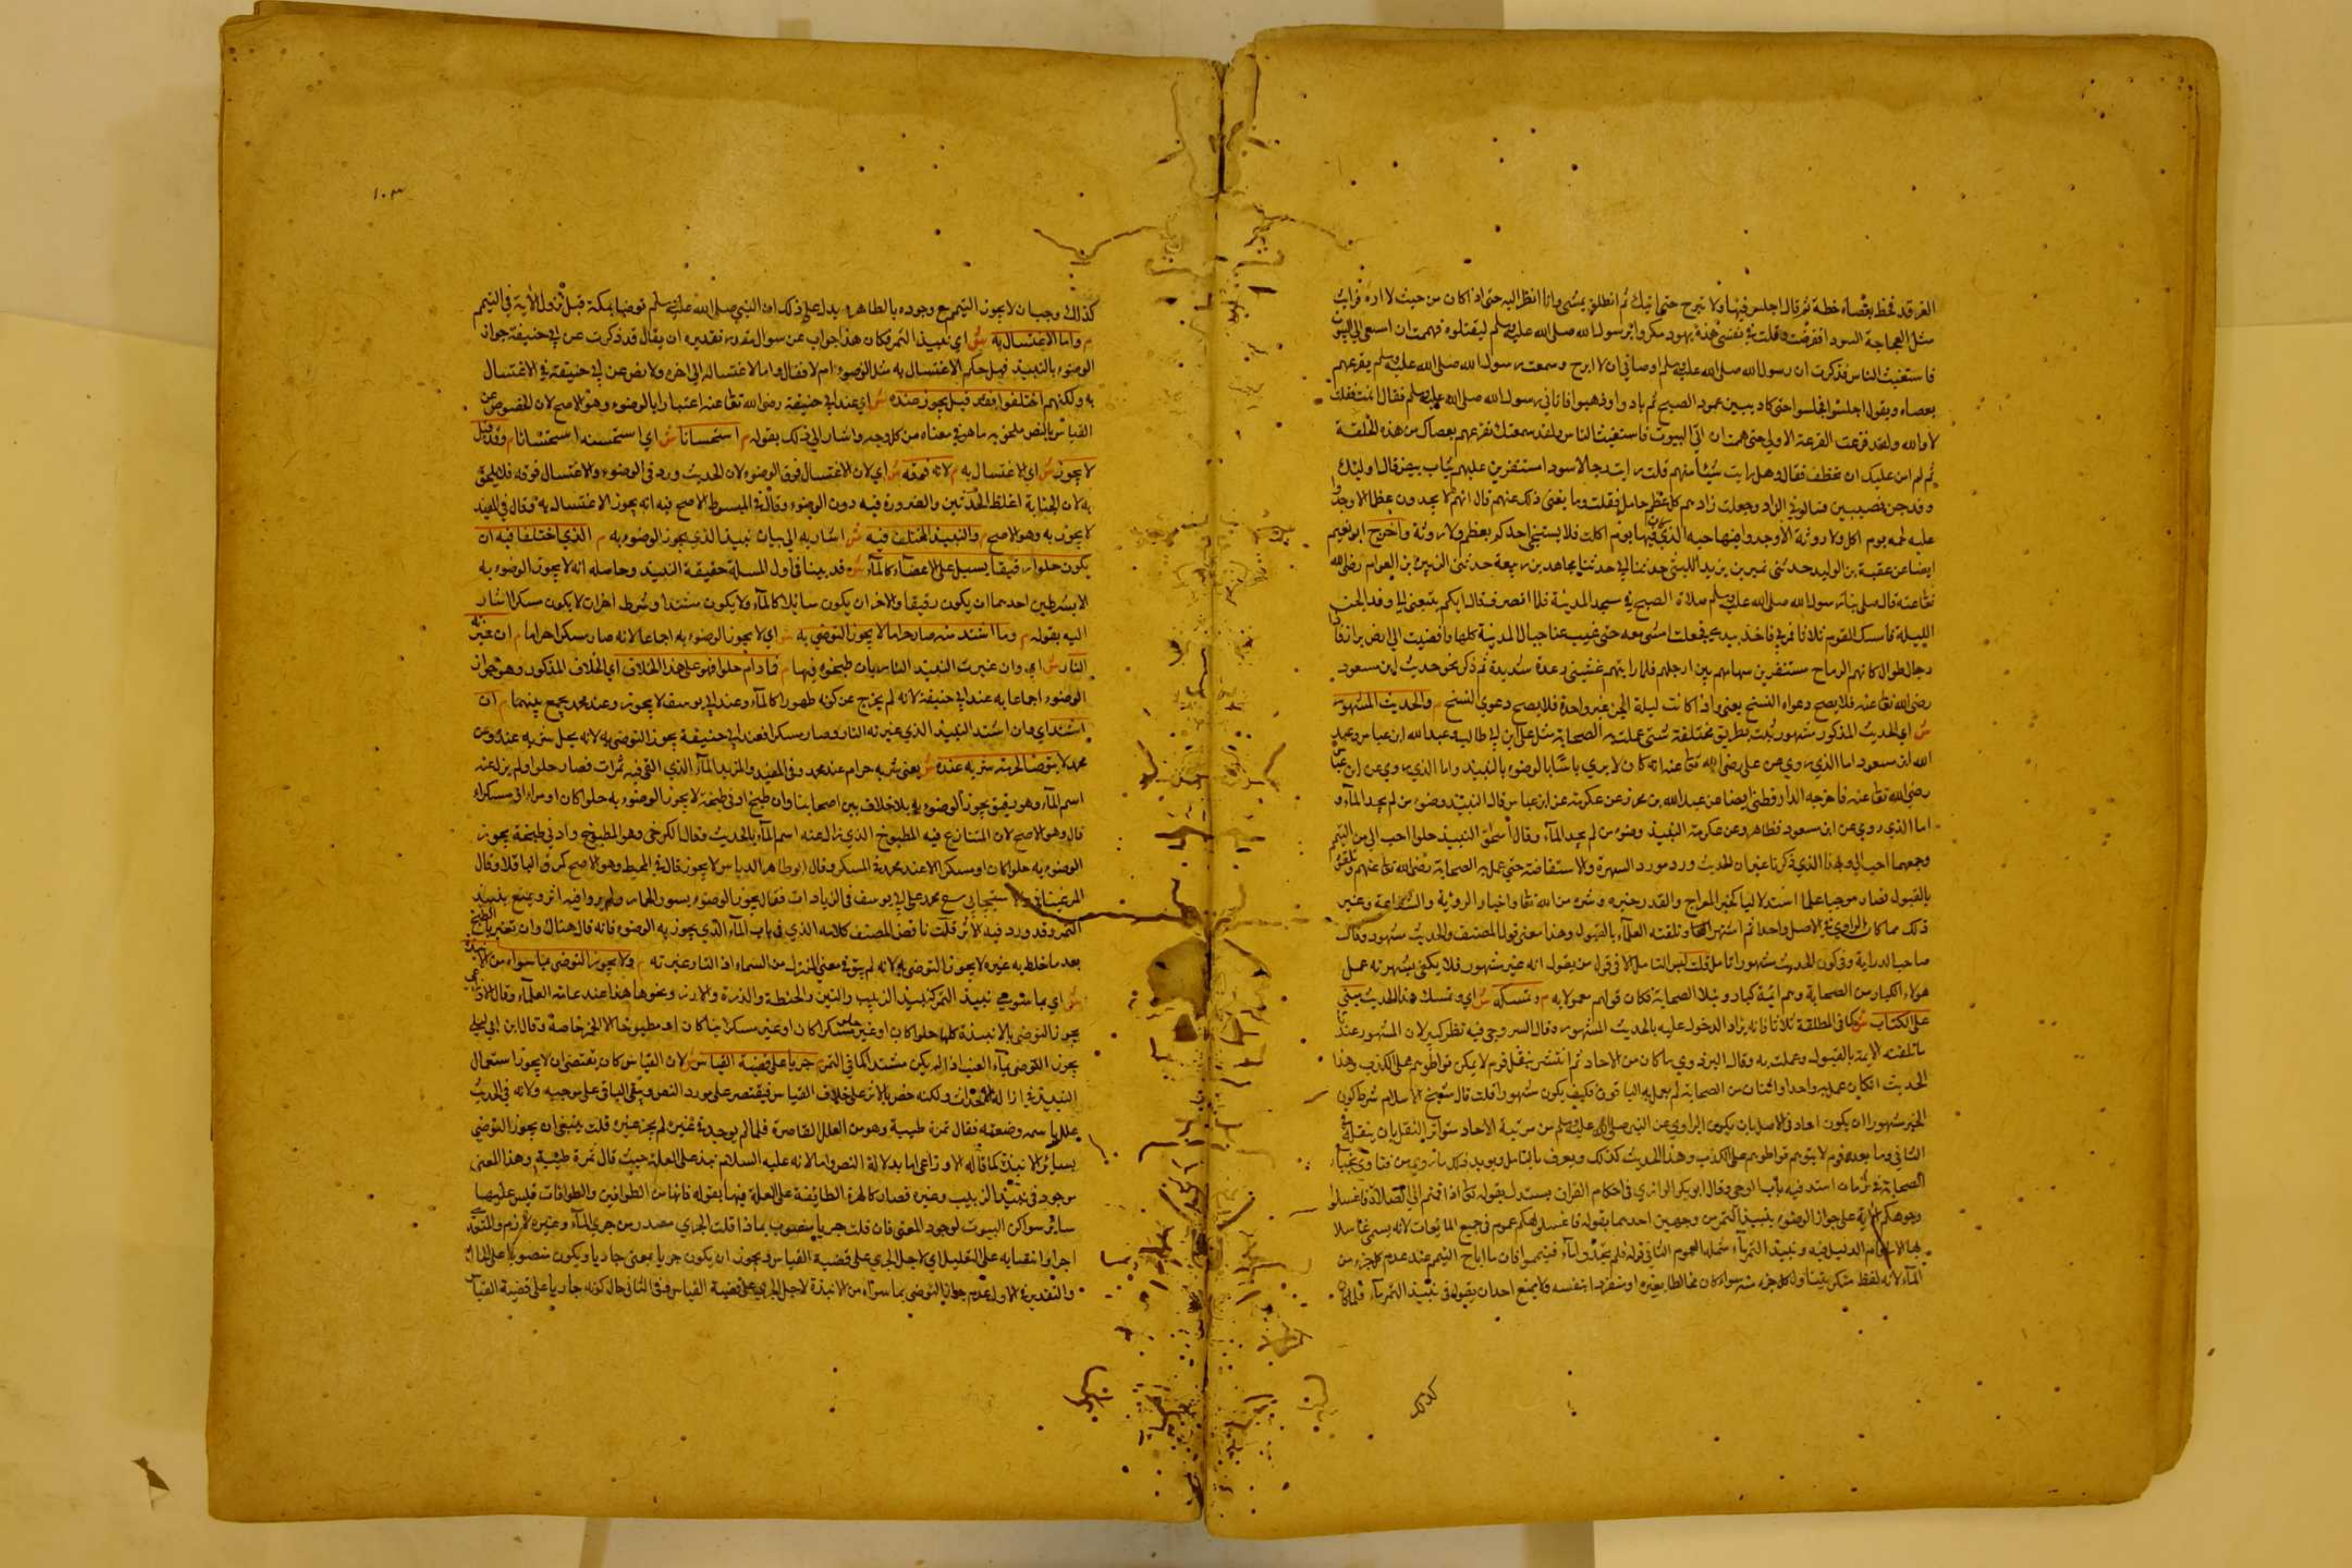 الغرقد فخط بعصاه خطة ثم قال اجلس فيها ولا تبرح حتى اتيك ثم انطلق يمشي وانا انظر اليه حتى اذا كان من حيث لا اراه
مثل العجاجة السودا ففرقت وقلت في نفسي هذه يهود مكروا برسول الله صلى الله عليه وسلم ليقتلوه فهممت ان اسعى الى البيوت
فاستغيث الناس فذكرت ان رسول الله صلى الله عليه وسلم اوصاني ان لا ابرح وسمعت رسول الله صلى الله عليه وسلم يقرعهم
بعصاه ويقول اجلسوا فجلسوا حتى كاد يبين عمود الصبح ثم بادوا وذهبوا فاتاني رسول الله صلى الله عليه وسلم فقال انمت فقلت
لا والله ولقد فزعت الفزعة الاولى حتى هممت ان اتي البيوت فاستغيث الناس ولقد سمعتك تقرعهم بعصاك من هذه الحلقة
ثم لم امن عليك ان تخطف فقال وهل رايت شيئا منهم قلت رايت رجالا سود استثفرين عليهم ثياب بيض قال اوليك
وفد جن نصيبين فسالوني الزاد وجعلت زادهم كل عظم حايل فقلت وما يغني ذلك عنهم قال انهم لا يجدون عظما الا وجدوا
عليه لحمه يوم اكل ولا روثة الا وجدوا فيها حبه الذي كان فيها يوم اكلت فلا يستنجي احدكم بعظم ولا روثة واخرج ابو نعيم
ايضا عن عقبة بن الوليد حدثني نمير بن يزيد الليثي حدثنا ابي حدثنا مجاهد بن ربيعة حدثني الزبير بن العوام رضي الله
تعا عنه قال صلى بنا رسول الله صلى الله عليه وسلم صلاة الصبح في مسجد المدينة فلما انصرف قال ايكم يتبعني الى وفد الجن
الليلة فاسكت القوم ثلاثا فمر بي فاخذ بيدي فجعلت امشي معه حتى غيبت عنا جبال المدينة كلها وافضيت الى ارض براز فاذا
رجال طوال كانهم الرماح مستثفرين ثيابهم بين ارجلهم فلما رايتهم غشيتني رعدة شديدة ثم ذكر نحو حديث ابن مسعود
رضي الله تعا عنه فلا يصح دعواه النسخ يعني واذا كانت ليلة الجن غير واحدة فلا يصح دعوى النسخ م والحديث المشهور
ش اي الحديث المذكور مشهور ثبت بطريق مختلفة شتى عملت به الصحابة مثل علي ابن ابي طالب وعبد الله ابن عباس وعبد
الله ابن مسعود اما الذي روي عن علي رضي الله تعا عنه انه كان لا يرى باسا بالوضوء بالنبيذ واما الذي روي عن ابن عباس
رضي الله تعا عنه فاخرجه الدارقطني ايضا عن عبد الله بن محرز عن عكرمة عن ابن عباس قال النبيذ وضوء من لم يجد الماء و
اما الذي روي عن ابن مسعود فظاهر وعن عكرمة النبيذ وضوء من لم يجد الماء وقال اسحق النبيذ حلوا احب الي من التيمم
وجمعهما احب الي ولهذا الذي ذكرنا عنه ان الحديث ورد مورد الشهرة والاستفاضة حتى عمل به الصحابة رضي الله تعا عنهم وتلقوه
بالقبول فصار موجبا علما استدلاليا كخبر المعراج والقدر خيره وشره من الله تعا واخبار الروية والشفاعة وغير
ذلك مما كان الراوي في الاصل واحدا ثم اشتهر وتلقته العلماء بالقبول وهذا معنى قول المصنف والحديث مشهور وقال
صاحب الدراية وفي كون الحديث مشهورا تامل قلت ليس التامل الا في قول من يقول انه غير مشهور فلا يكفي لشهرته عمل
هولاء الكبار من الصحابة وهم ائمة كبار ونبلا الصحابة فكان قولهم معمولا به م وتمسكه ش اي وتمسك هذا الحديث يبنى
على الكتاب ش كما في المطلقة ثلاثا فانه يزاد الدخول عليه بالحديث المشهور وقال السروجي فيه نظر كبير لان المشهور عندنا
ما تلقته الامة بالقبول وعملت به وقال البزدوي ما كان من الاحاد ثم انتشر بنقل قوم لا يمكن تواطوهم على الكذب وهذا
الحديث ان كان عمل به واحد او اثنان من الصحابة لم يعمل به الباقون فكيف يكون مشهورا قلت قال شيخ الاسلام شرط كون
الخبر مشهورا ان يكون احاد في الاصل بان يكون الراوي عن النبي صلى الله عليه وسلم من مرتبة الاحاد متواتر النقل بان ينقله في
الثاني وما بعده قوم لا يتوهم تواطوهم على الكذب وهذا الحديث كذلك ويعرف بالتامل ويويد ذلك ما روي من فتاوى نجباء
الصحابة في زمان استد فيه باب الوحي وقال ابو بكر الرازي في احكام القران يستدل بقوله تعا اذا قمتم الى الصلاة فاغسلوا
وجوهكم الاية على جواز الوضوء بنبيذ التمر من وجهين احدهما بقوله فاغسلوا وجوهكم عموم في جميع المايعات لانه يسمى غاسلا
بها الا ما قام الدليل فيه ونبيذ التمر مما شملها العموم الثاني قوله فلم تجدوا ماء فتيمموا فان ما اباح التيمم عند عدم كل جزء من
الماء لانه لفظ منكر يتناول كل جزء منه سواء كان مخالطا بغيره او منفردا بنفسه ولا يمنع احد ان يقول في نبيذ التمر ماء فلما كان
كذلك
١٠٣
كذلك وجب ان لا يجوز التيمم مع وجوده بالظاهر يدل على ذلك ان النبي صلى الله عليه وسلم توضا بمكة قبل نزول الاية في التيمم
م واما الاغتسال به ش اي بنبيذ التمر فكان هذا جواب عن سوال مقدر تقديره ان يقال قد ذكرت عن ابي حنيفة جواز
الوضوء بالنبيذ فهل حكم الاغتسال به مثل الوضوء ام لا فقال واما الاغتسال الى اخره ولا نص عن ابي حنيفة في الاغتسال
به ولكنهم اختلفوا فقد قيل يجوز عنده ش اي عند ابي حنيفة رضي الله تعا عنه اعتبارا بالوضوء وهو الاصح لان المخصوص عن
القياس بالنص ملحق به ما هو في معناه من كل وجه واشار الى ذلك بقوله م استحسانا ش اي استحسنه استحسانا م وقد قيل
لا يجوز ش اي الاغتسال به م لانه فوقه ش اي لان الاغتسال فوق الوضوء لان الحديث ورد في الوضوء والاغتسال فوقه فلا يلحق
به لان الجنابة اغلظ الحدثين والضرورة فيه دون الوضوء وقال في المبسوط الاصح فيه انه يجوز الاغتسال به وقال في المفيد
لا يجوز به وهو الاصح م والنبيذ المختلف فيه ش اشار به الى بيان نبيذ الذي يجوز الوضوء به م الذي اختلفا فيه ان
يكون حلوا رقيقا يسيل على الاعضاء كالماء ش قد بينا في اول المسلة حقيقة النبيذ وحاصله انه لا يجوز الوضوء به
الا بشرطين احدهما ان يكون رقيقا والاخر ان يكون سائلا كالماء ولا يكون مشتدا وشرط اخر ان لا يكون مسكرا اشار
اليه بقوله م وما اشتد منه صار حراما لا يجوز التوضي به ش اي لا يجوز الوضوء به اجماعا لانه صار مسكرا حراما م ان غيرته
النار ش اي وان غيرت النبيذ النار بان طبخوه فيها م فما دام حلوا فهو على هذا الخلاف اي الخلاف المذكور وهو جواز
الوضوء اجماعا به عند ابي حنيفة لانه لم يخرج عن كونه طهورا كالماء وعند ابي يوسف لا يجوز وعند محمد يجمع بينهما م ان
اشتد اي وان اشتد النبيذ الذي غيرته النار وصار مسكرا فعند ابي حنيفة يجوز التوضي به لانه يحل شربه عنده وعن
محمد لا يتوضا لحرمة شربه عنده ش يعني شربه حرام عند محمد وفي المفيد والمزيد الماء الذي القي فيه تمرات فصار حلوا ولم يزل عنه
اسم الماء وهو رقيق يجوز الوضوء به بلا خلاف بين اصحابنا وان طبخ ادنى طبخة لا يجوز الوضوء به حلوا كان او مرا او مسكرا
قال وهو الاصح لان المتنازع فيه المطبوخ الذي زال عنه اسم الماء بالحديث وقال الكرخي وهو المطبوخ وادنى طبخة يجوز
الوضوء به حلوا كان او مسكرا الا عند محمد في المسكر وقال ابو طاهر الدباس لا يجوز قال في المحيط وهو الاصح كمرق الباقلا وقال
التمر وقد ورد فيه الاثر قلت ناقض المصنف كلامه الذي في باب الماء الذي يجوز به الوضوء فانه قال هناك وان تغير بالطبخ
بعد ما خلط به غيره لا يجوز التوضي به لانه لم يبق في معنى المنزل من السماء اذ النار غيرته م ولا يجوز التوضي بما سواه من الانبذة
ش اي بما سوى نبيذ التمر كنبيذ الزبيب والتين والحنطة والذرة والارز ونحوها هذا عند عامة العلماء وقال الاوزاعي
يجوز التوضي بالانبذة كلها حلوا كان او غير حلو مسكرا كان او غير مسكر نيا كان او مطبوخا الا الخمر خاصة وقال ابن ابي ليلى
يجوز التوضي بماء العنب اذا لم يكن مشتدا كما في التمر م جريا على قضية القياس ش لان القياس كان يقتضي ان لا يجوز استعمال
النبيذ في ازالة الاحداث ولكنه خص بالاثر على خلاف القياس فيقتصر على مورد النص ويبقى الباقي على موجبه ولانه في الحديث
علل باسمه وصفته فقال تمرة طيبة وهو من العلل القاصرة فلما لم يوجد في غيره لم يجز غيره قلت ينبغي ان يجوز التوضي
بسائر الانبذة كما قاله الاوزاعي اما بدلالة النص واما لانه عليه السلام نبذ على العلة حيث قال تمرة طيبة وهذا المعنى
موجود في نبيذ الزبيب وغيره فصار كالهرة الطائفة على العلة فيها بقوله فانها من الطوافين والطوافات قيس عليها
سائر سواكن البيوت لوجود المعنى فان قلت جريا منصوب بماذا قلت الجري مصدر من جري الماء وغيره لازم والمتعدي
اجراوا انتصابه على التعليل اي لاجل الجري على قضية القياس ويجوز ان يكون جريا بمعنى جاريا ويكون منصوبا على الحال
والتقدير في الاول عدم جواز التوضي بما سواه من الانبذة لاجل الجري على قضية القياس وفي الثاني حال كونه جاريا على قضية القياس